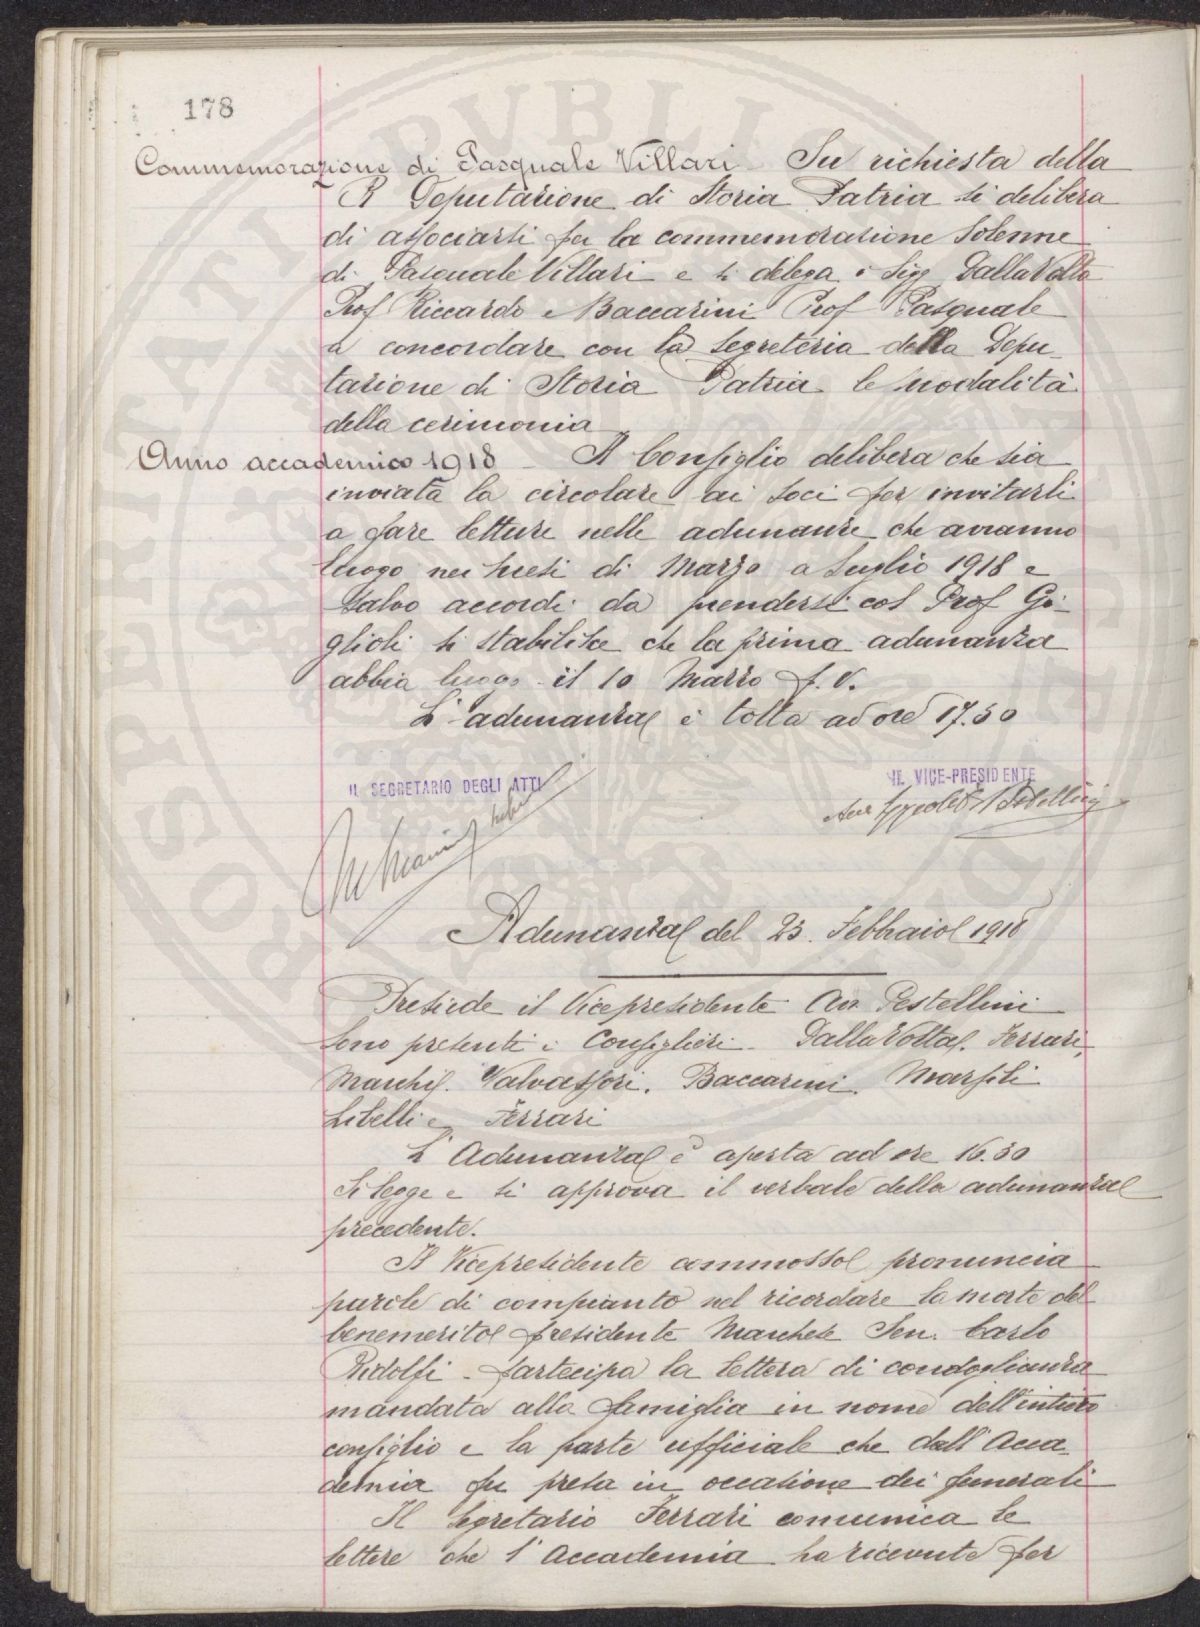 178
Commemorazione di Pasquale Villari Su richiesta della
R Deputazione di Storia Patria si delibera
di associarsi per la commemorazione solenne
di Pasquale Villari e si delega i Sigg Dalla Volta
Prof Riccardo e Baccarini Prof Pasquale
a concordare con la segreteria della Depu-
tazione di Storia Patria le modalità
della cerimonia
Anno accademico 1918 - Il Consiglio delibera che sia
inviata la circolare ai soci per invitarli
a fare letture nelle adunanze che avranno
luogo nei mesi di Marzo a Luglio 1918 e
salvo accordi da prendersi col Prof Gi-
glioli si stabilisce che la prima adunanza
abbia luogo il 10 Marzo p. v.
L'adunanza è tolta ad ore 17.30
IL SEGRETARIO DEGLI ATTI
IL VICE-PRESIDENTE
Adunanza del 23. Febbraio 1918
Presiede il Vicepresidente Avv. Pestellini
Sono presenti i Consiglieri Dalla Volta. Ferrari,
Marchi. Valvassori. Baccarini. Marsili
Libelli e Ferrari
L'Adunanza è aperta ad ore 16.30
Si legge e si approva il verbale della adunanza
precedente.
Il Vicepresidente commosso pronuncia
parole di compianto nel ricordare la morte del
benemerito presidente Marchese Sen. Carlo
Ridolfi - partecipa la lettera di condoglianza
mandata alla famiglia in nome dell'intiero
consiglio e la parte ufficiale che dall'Acca
demia fu presa in occasione dei funerali
Il Segretario Ferrari comunica le
lettere che l'Accademia ha ricevute per